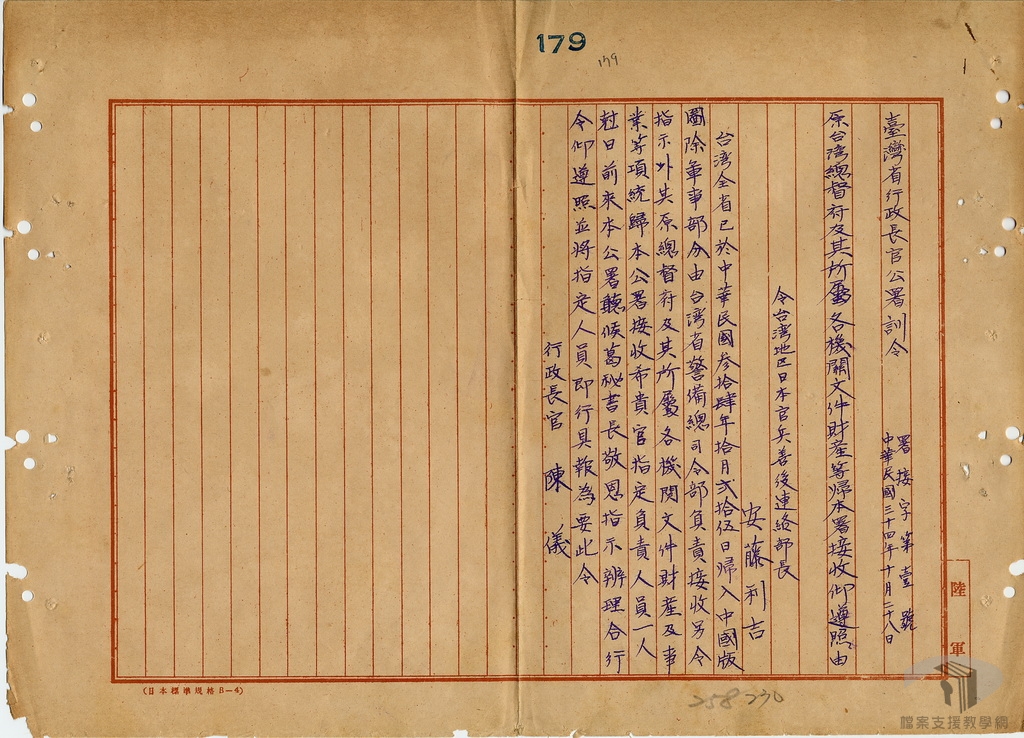 179
179
臺灣省行政長官公署訓令
署接字第壹號
中華民國三十四年十月二十八日
原台湾總督府及其所屬各機關文件財產等歸本署接收仰遵照由
令台湾地区日本官兵善後連絡部長
安藤利吉
台湾全省已於中華民國參拾肆年拾月弍拾伍日歸入中國版
圖除軍事部分由台湾省警備總司令部負責接收另令
指示外其原總督府及其所屬各機関文件財產及事
業等項統歸本公署接收希貴官指定負責人員一人
尅日前來本公署聽候葛秘書長敬恩指示辨理合行
令仰遵照並將指定人員即行具報為要此令
行政長官 陳儀
陸軍
(日本標準規格B-4)
258 270
檔案支援教學網